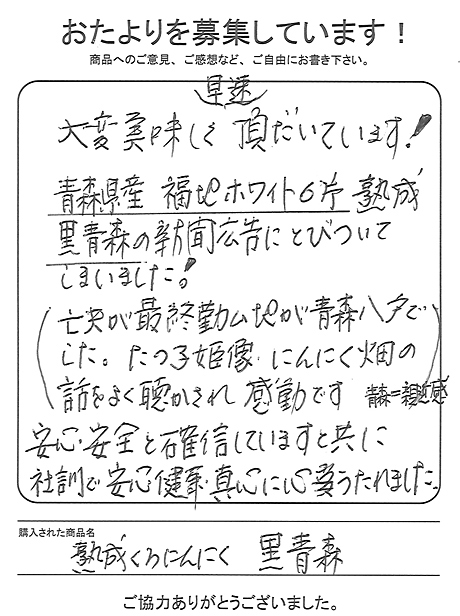 おたよりを募集しています!
商品へのご意見、ご感想など、ご自由にお書き下さい。
早速
大変美味しく頂だいています!
青森県産 福地ホワイト6片 熟成
黒青森の新聞広告にとびついて
しまいました!
(亡夫が最終勤ム地が青森八戸で
した。たつ子姫像 にんにく畑の
話をよく聴かされ 感動です 青森=親近感)
安心・安全と確信していますと共に
社訓で安心健康・真心に心うたれました。
購入された商品名
熟成くろにんにく 黒青森
ご協力ありがとうございました。